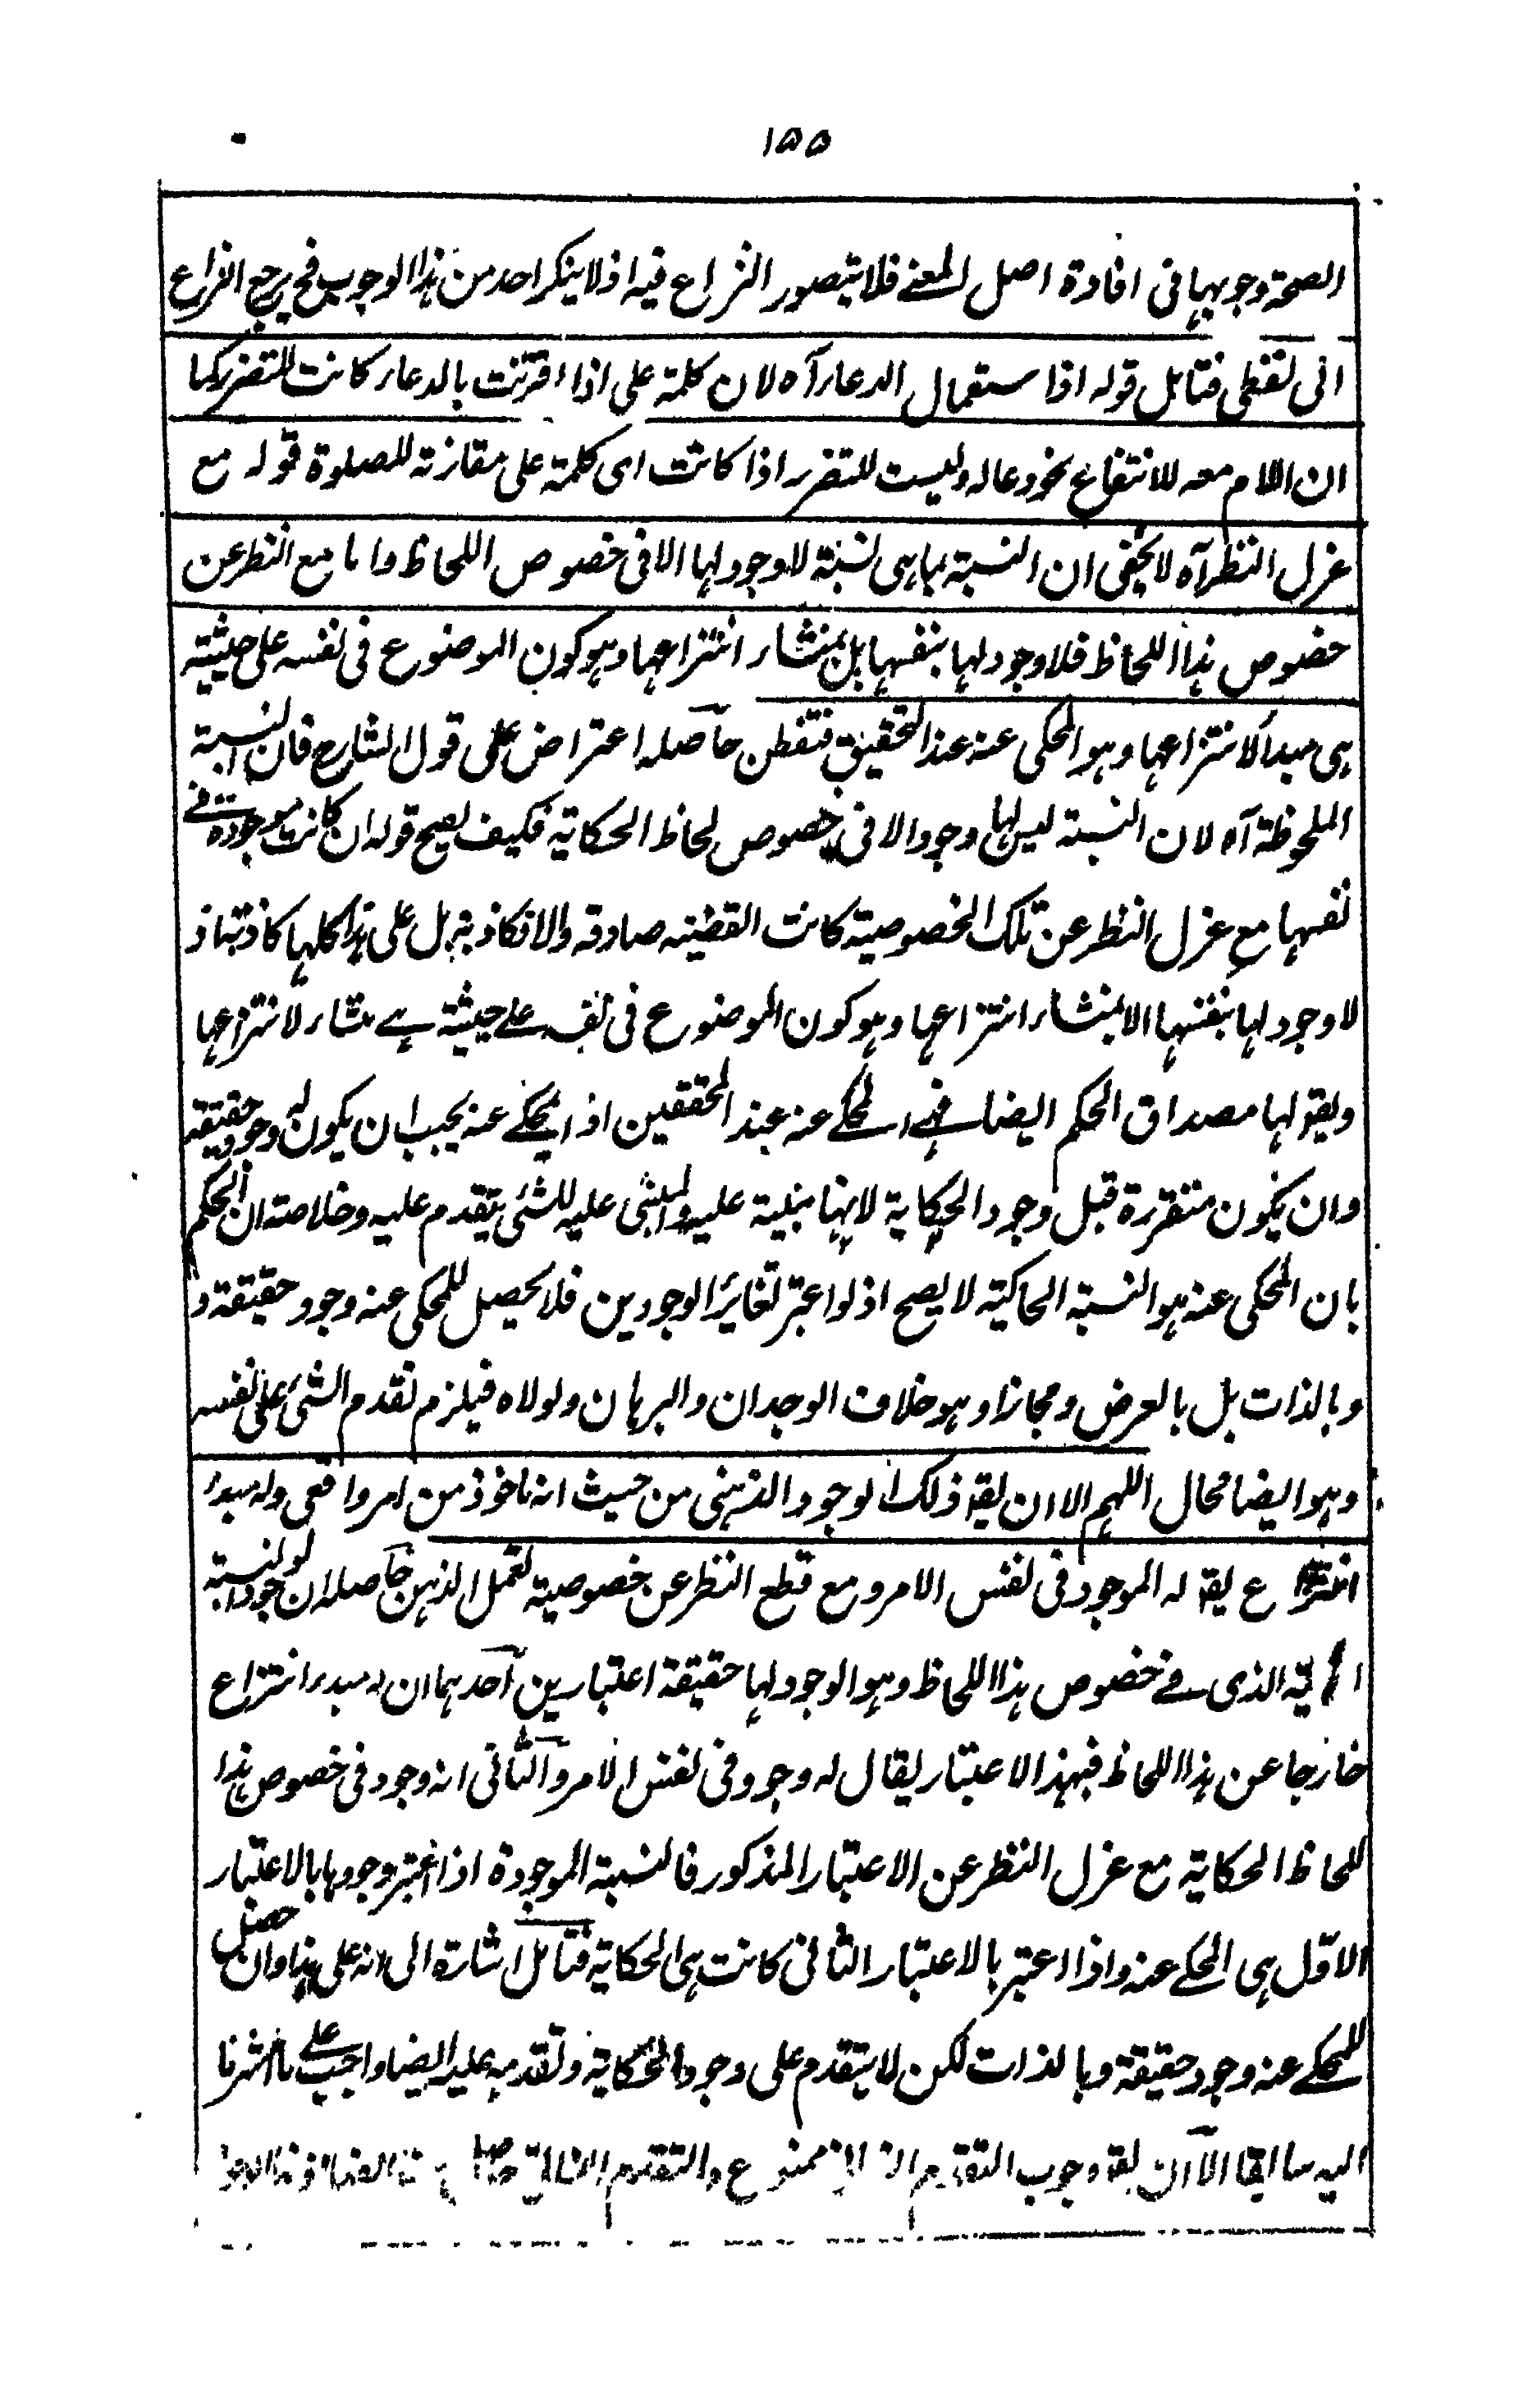 ۱۵۵
الصحة وجوبهما فى افادة اصل المعنے فلا يتصور النزاع فيه اذ لا ينكر احد من هذا الوجوب فح يرجع النزاع
الى لفظى فتامل قوله اذا استعمال الدعاء آه لان كلمة على اذا اقترنت بالدعاء كانت للتضرر كما
ان اللام معه للانتفاع نحو دعا له وليست للتضرر اذا كانت اى كلمة على مقارنة للصلوة قوله مع
عزل النظر آه لا يخفى ان النسبة بما هى نسبة لا وجود لها الا فى خصوص اللحاظ واما مع النظر عن
خصوص هذا اللحاظ فلا وجود لها بنفسها بل بمنشاء انتزاعها وهو كون الموضوع فى نفسه على حيثية
هى مبدأ لانتزاعها وهو المحكى عنه عند التحقيق فتفطن حاصله اعتراض على قول الشارح فان النسبة
الملحوظة آه لان النسبة ليس لها وجود الا فى خصوص لحاظ الحكاية فكيف يصح قوله ان كانت موجودة فے
نفسها مع عزل النظر عن تلك الخصوصية كانت القضية صادقه والا فكاذبة بل على هذا كلها كاذبة اذ
لا وجود لها بنفسها الا بمنشاء انتزاعها وهو كون الموضوع فى نفسه علے حيثية ہے منشاء لانتزاعها
ويقو لها مصداق الحكم ايضا فہے المحكے عنه عند المحققين اذ المحكے عنه يجب ان يكون له وجود حقيقة
وان يكون متقررة قبل وجود الحكاية لانها مبنية عليه والمبنى عليه للشئ يتقدم عليه وخلاصته ان الحكم
بان المحكى عنه هو النسبة الحاكية لا يصح اذ لو اعتبر تغاير الوجودين فلا يحصل للمحكى عنه وجود حقيقة و
و بالذات بل بالعرض ومجازا وهو خلاف الوجدان والبرهان ولولاه فيلزم تقدم الشئ على نفسه
وهو ايضا محال اللهم الا ان يقو ذلك الوجود الذهنى من حيث انه ماخوذ من امر واقعى وله مبدء
انتزاع يقو له الموجود فى نفس الامر ومع قطع النظر عن خصوصية تعمل الذهن حاصله ان لوجود النسبة
الذى فے خصوص هذا اللحاظ وهو الوجود لها حقيقة اعتبارين احدهما ان له مبدء انتزاع
خارجا عن هذا اللحاظ فبهذا الاعتبار يقال له وجود فى نفس الامر والثانى انه وجود فى خصوص هذا
للحاظ الحكاية مع عزل النظر عن الاعتبار المذكور فالنسبة الموجودة اذا اعتبر وجودها بالاعتبار
الاول هى المحكے عنه واذا اعتبر بالاعتبار الثانى كانت هى الحكاية فتامل اشارة الى انه على هذا وان حصل
للمحكے عنه وجود حقيقة وبالذات لكن لا يتقدم على وجود الحكاية وتقدمه عليه ايضا واجب علے ما اشرنا
اليه سابقا الا ان يقو وجوب التقدم ممنوع والتقدم